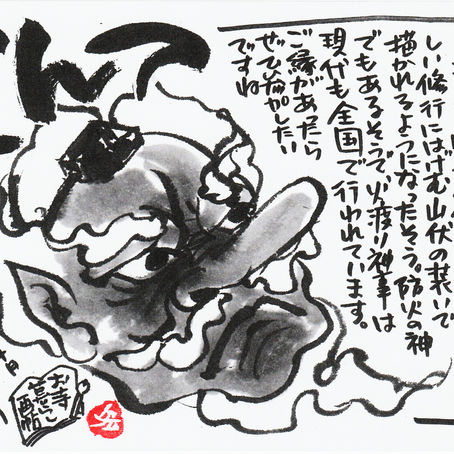 てん
しい修行にはげむ山伏の装いで
描かれるようになったそう。防火の神
でもあるそうで火渡り神事は
現代も全国で行われています。
ご縁があったら
ぜひ したい
ですね
お寺
画帖